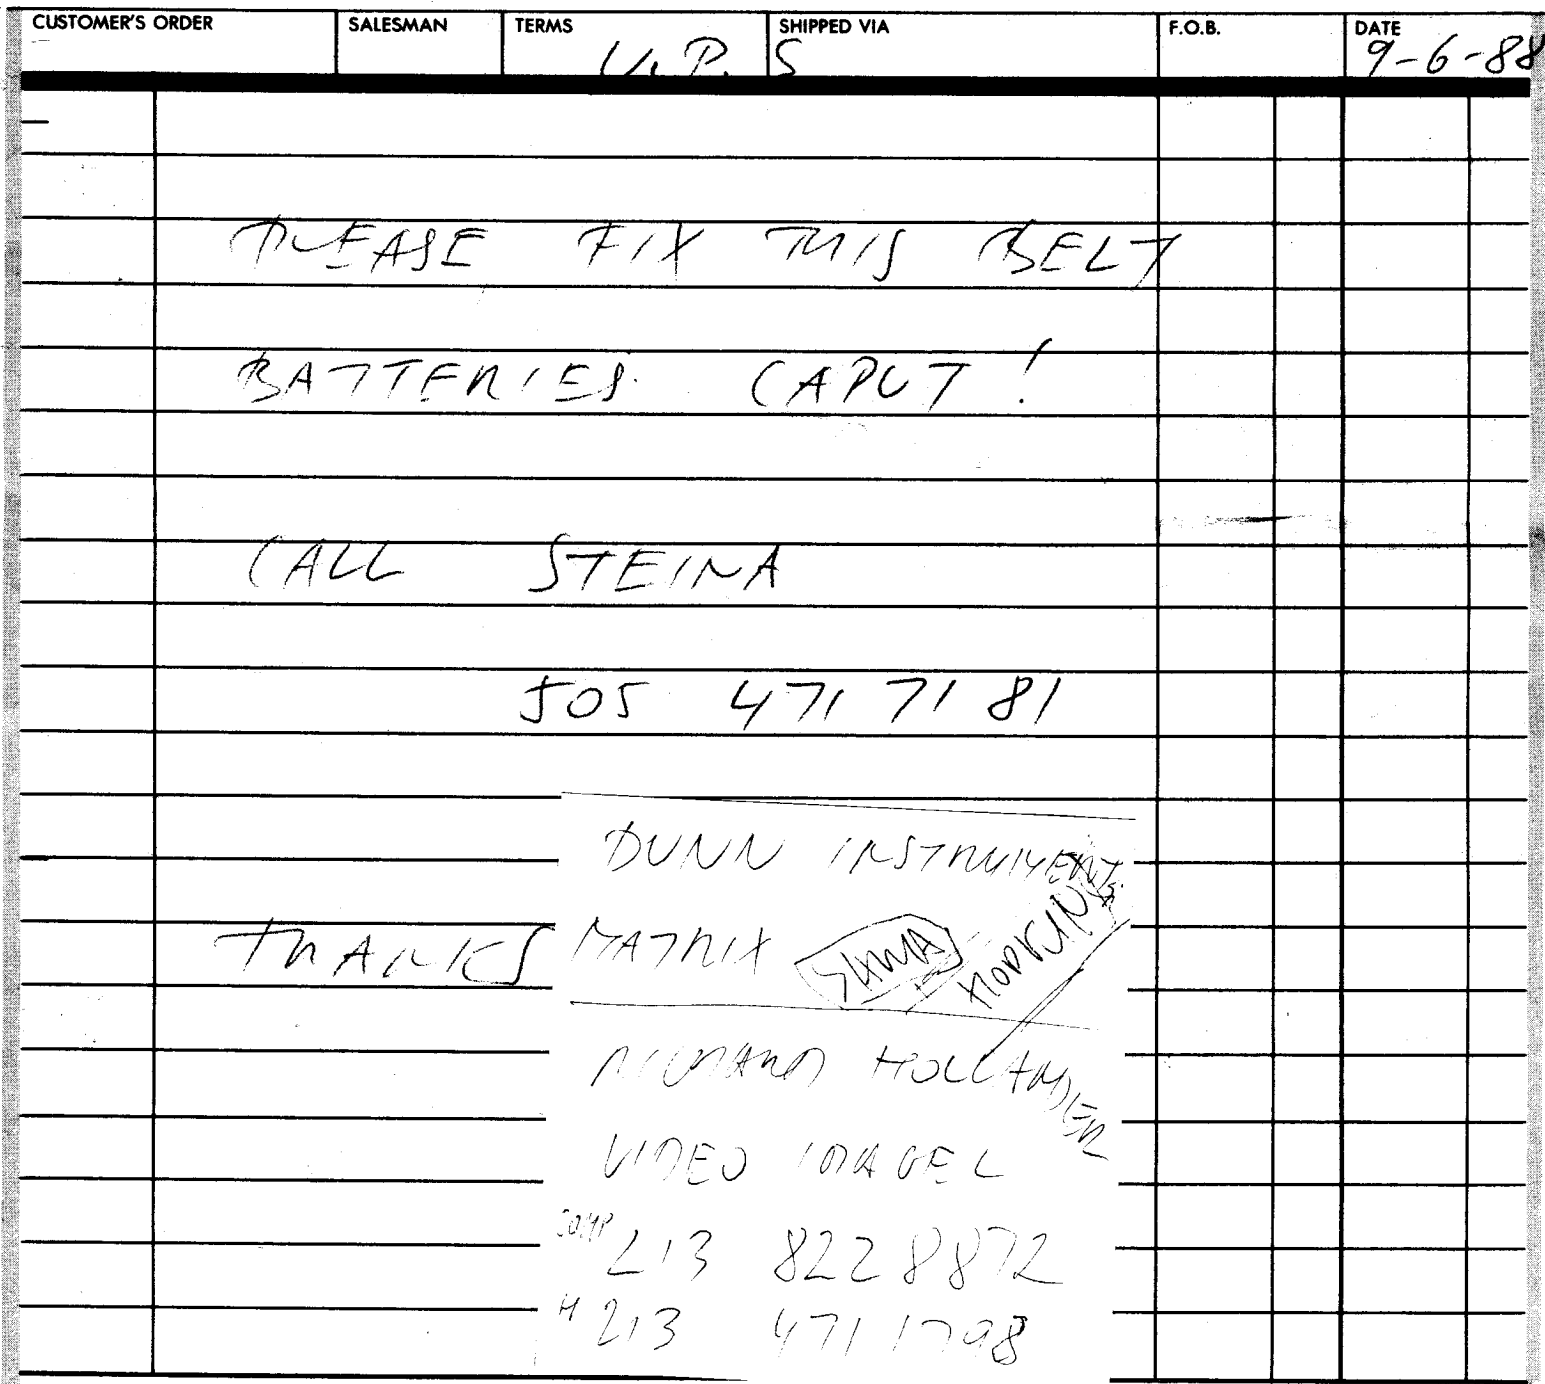 CUSTOMER'S ORDER SALESMAN TERMS SHIPPED VIA F.O.B. DATE
U.P.S 9-6-88
PLEASE FIX THIS BELT
BATTERIES CAPUT!
CALL STEINA
505 471 71 81
THANKS
DUNN INSTRUMENTS
MATRIX HOPKINS
RICHARD HOLLANDER
VIDEO IMAGE
COMP 213 822 8872
H 213 471 1798